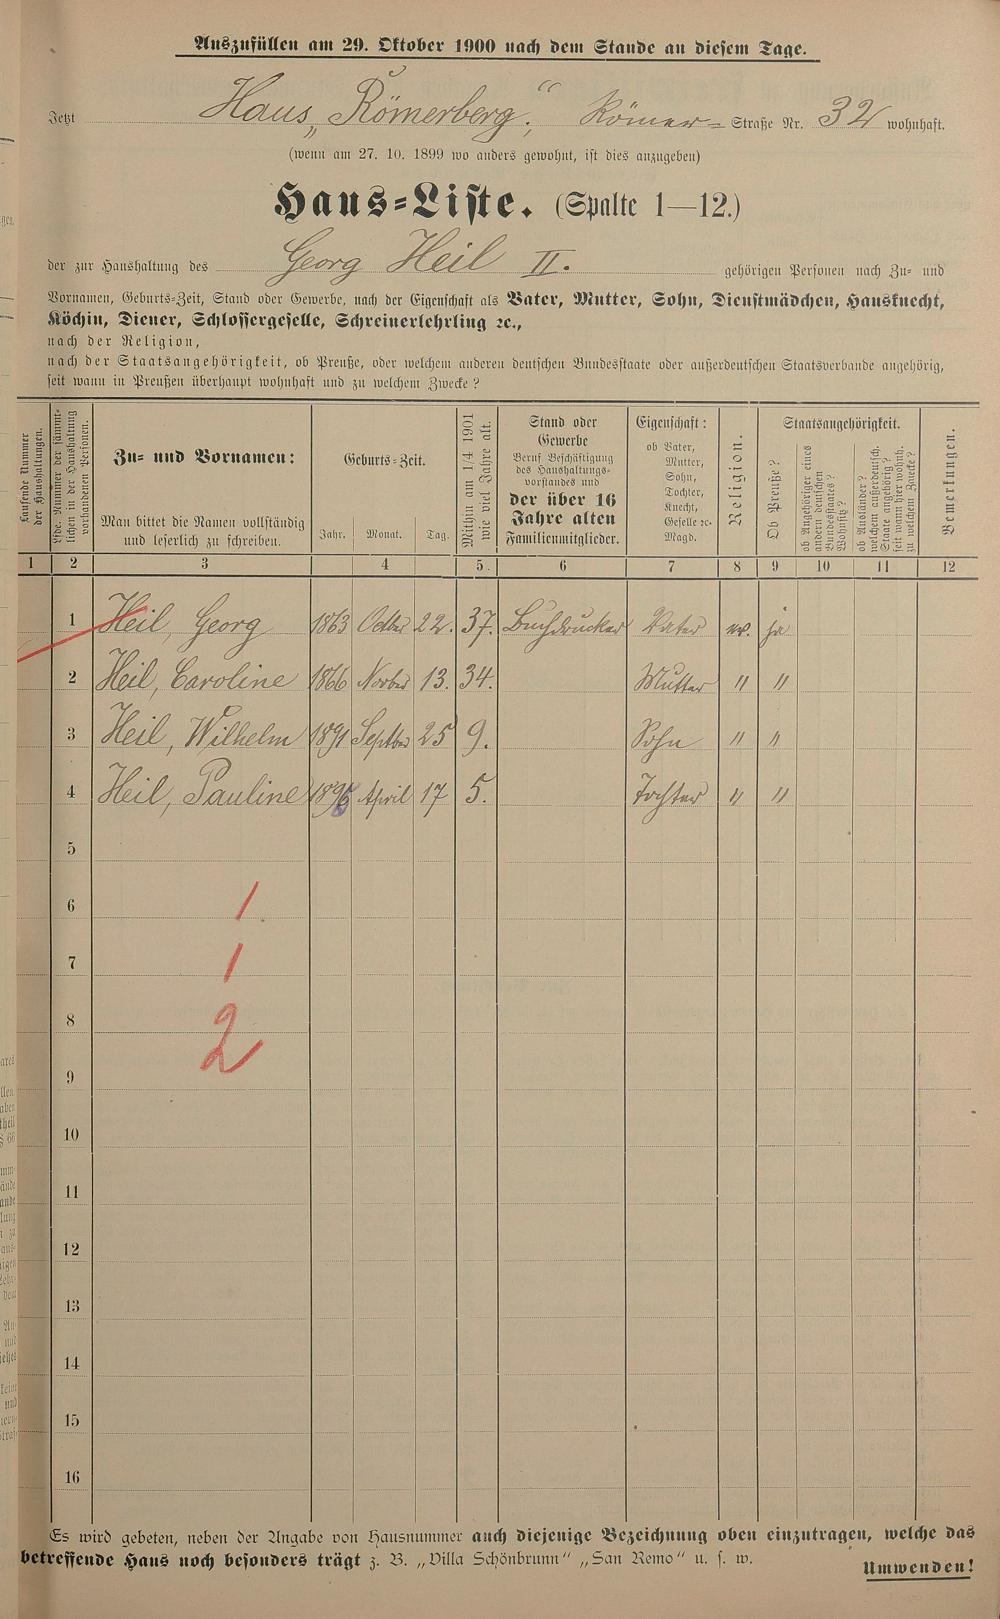 Auszufüllen am 29. Oktober 1900 nach dem Stande an diesem Tage.
Jetzt Haus „Römerberg“, Römer-Straße Nr. 32 wohnhaft.
(wenn am 27. 10. 1899 wo anders gewohnt, ist dies anzugeben)
Haus-Liste. (Spalte 1—12.)
der zur Haushaltung des Georg Heil II. gehörigen Personen nach Zu- und
Vornamen, Geburts-Zeit, Stand oder Gewerbe, nach der Eigenschaft als Vater, Mutter, Sohn, Dienstmädchen, Hausknecht,
Köchin, Diener, Schlossergeselle, Schreinerlehrling ꝛc.,
nach der Religion,
nach der Staatsangehörigkeit, ob Preuße, oder welchem anderen deutschen Bundesstaate oder außerdeutschen Staatsverbande angehörig,
seit wann in Preußen überhaupt wohnhaft und zu welchem Zwecke?
Laufende Nummer
der Haushaltungen.
Lfde. Nummer der sämmt-
lichen in der Haushaltung
vorhandenen Personen.
Zu- und Vornamen:
Man bittet die Namen vollständig
und leserlich zu schreiben.
Geburts-Zeit.
Jahr. Monat. Tag.
Mithin am 1/4 1901
wie viel Jahre alt.
Stand oder
Gewerbe
Beruf Beschäftigung
des Haushaltungs-
vorstandes und
der über 16
Jahre alten
Familienmitglieder.
Eigenschaft:
ob Vater,
Mutter,
Sohn,
Tochter,
Knecht,
Geselle ꝛc.
Magd.
Religion.
Staatsangehörigkeit.
Ob Preuße?
ob Angehöriger eines
andern deutschen
Bundesstaates?
Wohnsitz?
ob Ausländer?
welchem außerdeutsch.
Staate angehörig?
seit wann hier wohnh.
zu welchem Zwecke?
Bemerkungen.
1 2 3 4 5. 6 7 8 9 10 11 12
1 Heil, Georg 1863 Octber 22. 37. Buchdrucker Vater ev. ja
2 Heil, Caroline 1866 Novber 13. 34. Mutter " "
3 Heil, Wilhelm 1891 Septber 25 9. Sohn " "
4 Heil, Pauline 1896 April 17 5. Tochter " "
5
6 1
7 1
8 2
9
10
11
12
13
14
15
16
Es wird gebeten, neben der Angabe von Hausnummer auch diejenige Bezeichnung oben einzutragen, welche das
betreffende Haus noch besonders trägt z. B. „Villa Schönbrunn“ „San Remo“ u. s. w.
Umwenden!